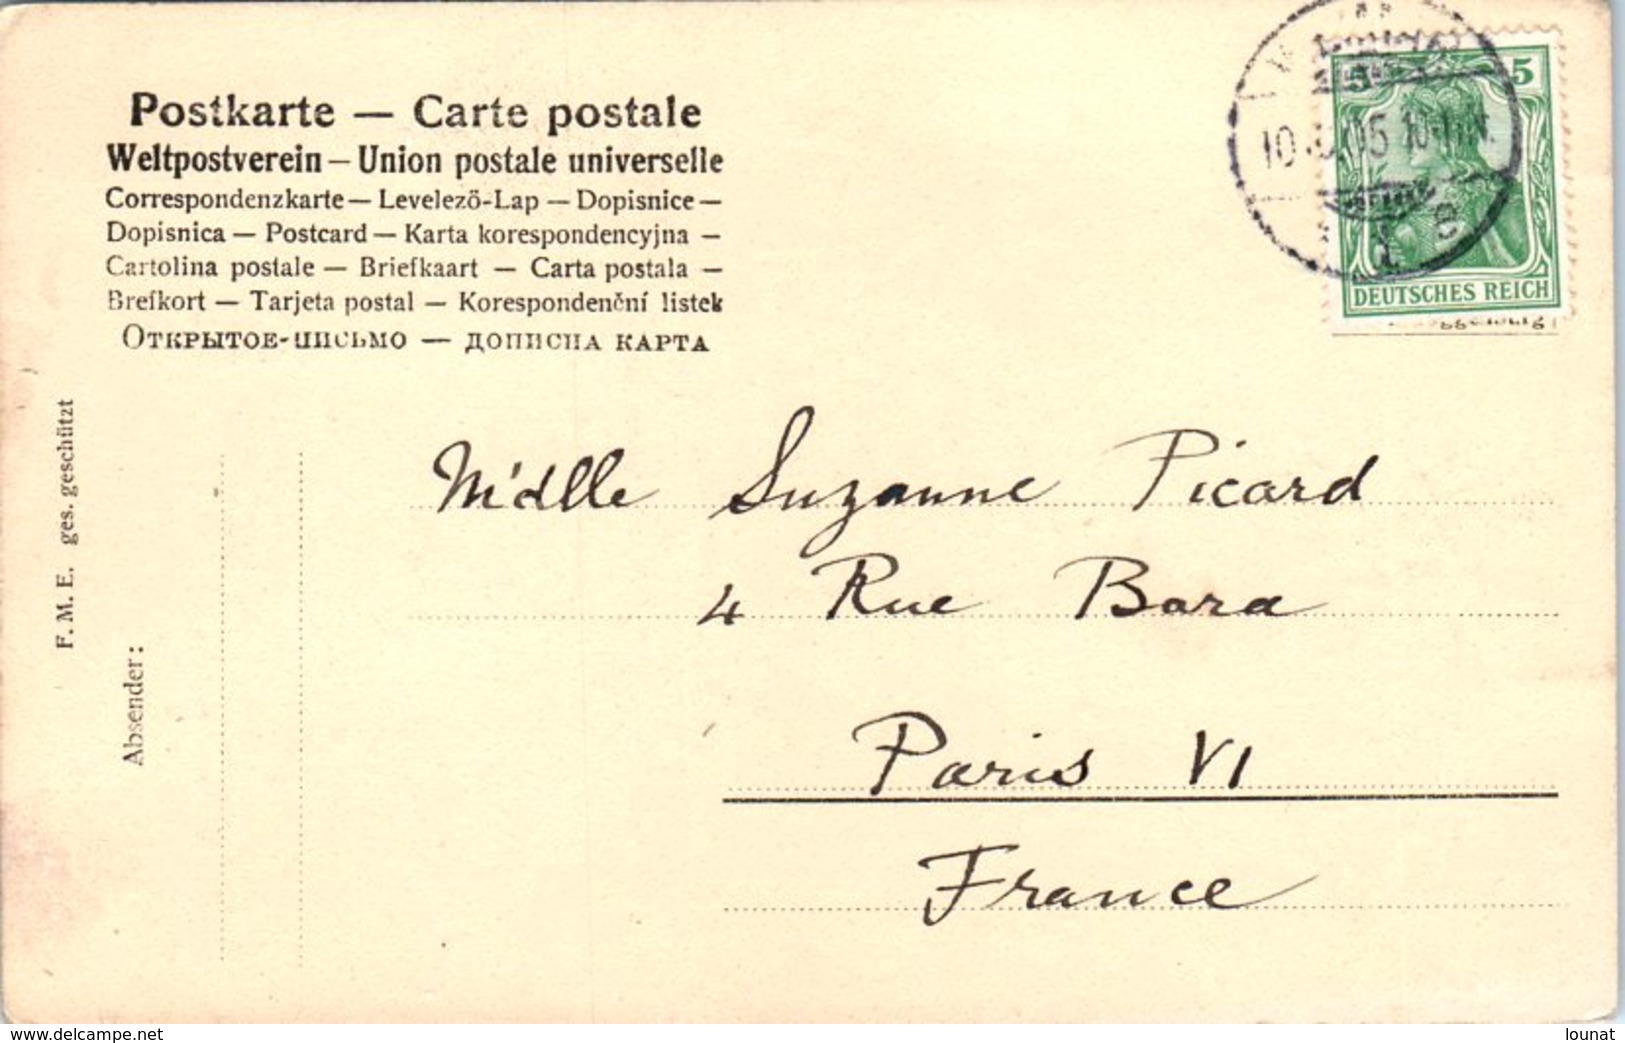 Postkarte — Carte postale
Weltpostverein — Union postale universelle
Correspondenzkarte — Levelező-Lap — Dopisnice —
Dopisnica — Postcard — Karta korespondencyjna —
Cartolina postale — Briefkaart — Carta postala —
Brefkort — Tarjeta postal — Korespondenční listek
ОТКРЫТОЕ-ПИСЬМО — ДОПИСНА КАРТА
5 5
DEUTSCHES REICH
F. M. E. ges. geschützt
Absender:
M'dlle Suzanne Picard
4 Rue Bara
Paris VI
France
www.delcampe.net
lounat